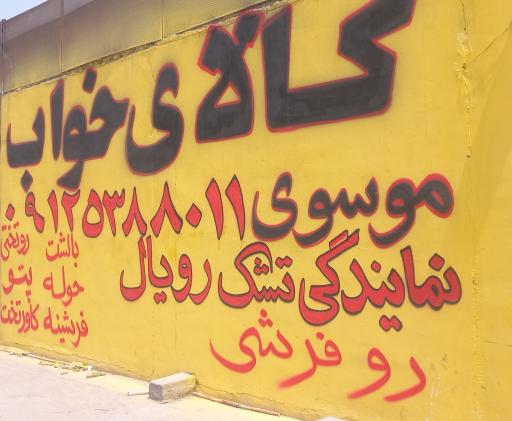 کالای خواب
موسوی ۰۹۱۲۵۳۸۸۰۱۱
نمایندگی تشک رویال
رو فرشی
بالشت روتختی
حوله پتو
فرشینه کاورتخت